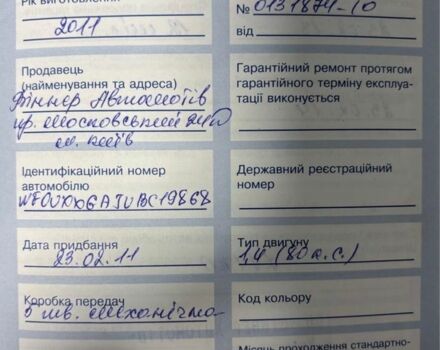 Рік виготовлення
2011
№ 0131874-10
від
Продавець
(найменування та адреса)
пр. Московський 24
м. Київ
Гарантійний ремонт протягом
гарантійного терміну експлуа-
тації виконується
Ідентифікаційний номер
автомобілю
WF0UXXGAJUBC19868
Державний реєстраційний
номер
Дата придбання
23.02.11
Тип двигуну
1,4 (80 к.с.)
Коробка передач
5 шв. механічна
Код кольору
Місяць проходження стандартно-